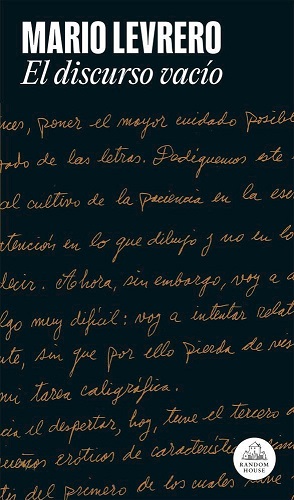 MARIO LEVRERO
El discurso vacío
nces, poner el mayor cuidado posible
pado de las letras. Dediquemos este
al cultivo de la paciencia en la esc
atención en lo que dibujo y no en lo
decir. Ahora, sin embargo, voy a a
lgo muy difícil: voy a intentar relat
nte, sin que por ello pierda de vis
mi tarea caligráfica.
ncia el despertar, hoy, tuve el tercero d
sueños eróticos de característic
nte del primero de los cuales tuve
RANDOM
HOUSE